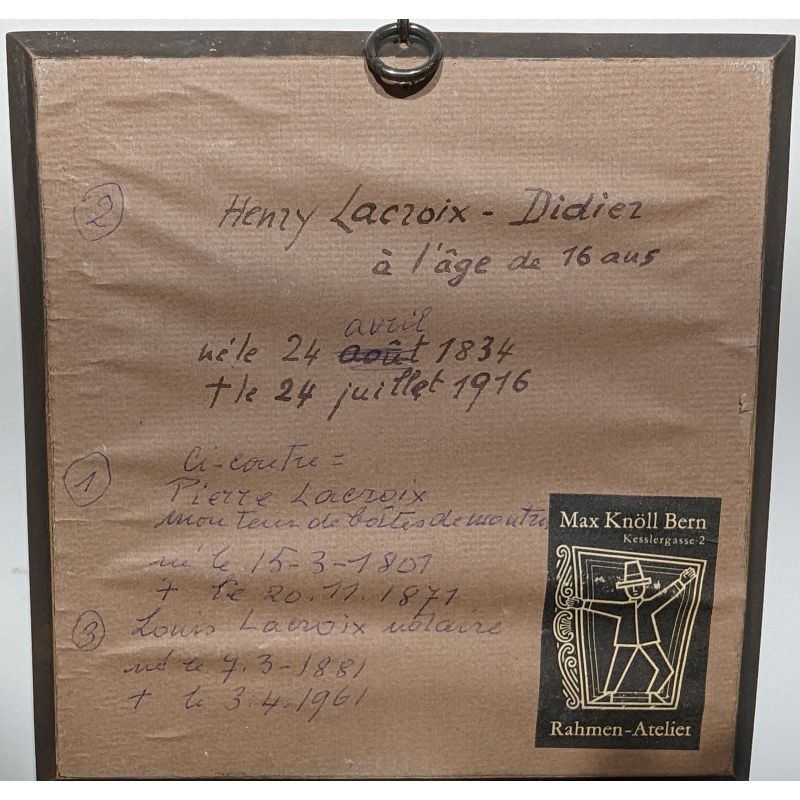 2
Henry Lacroix - Didier
à l'âge de 16 ans
avril
né le 24 août 1834
† le 24 juillet 1916
1
Ci-contre =
Pierre Lacroix
monteur de boîtes de montre
né le 15-3-1801
† le 20.11.1871
3
Louis Lacroix notaire
né le 7.3-1881
† le 3.4.1961
Max Knöll Bern
Kesslergasse 2
Rahmen-Atelier